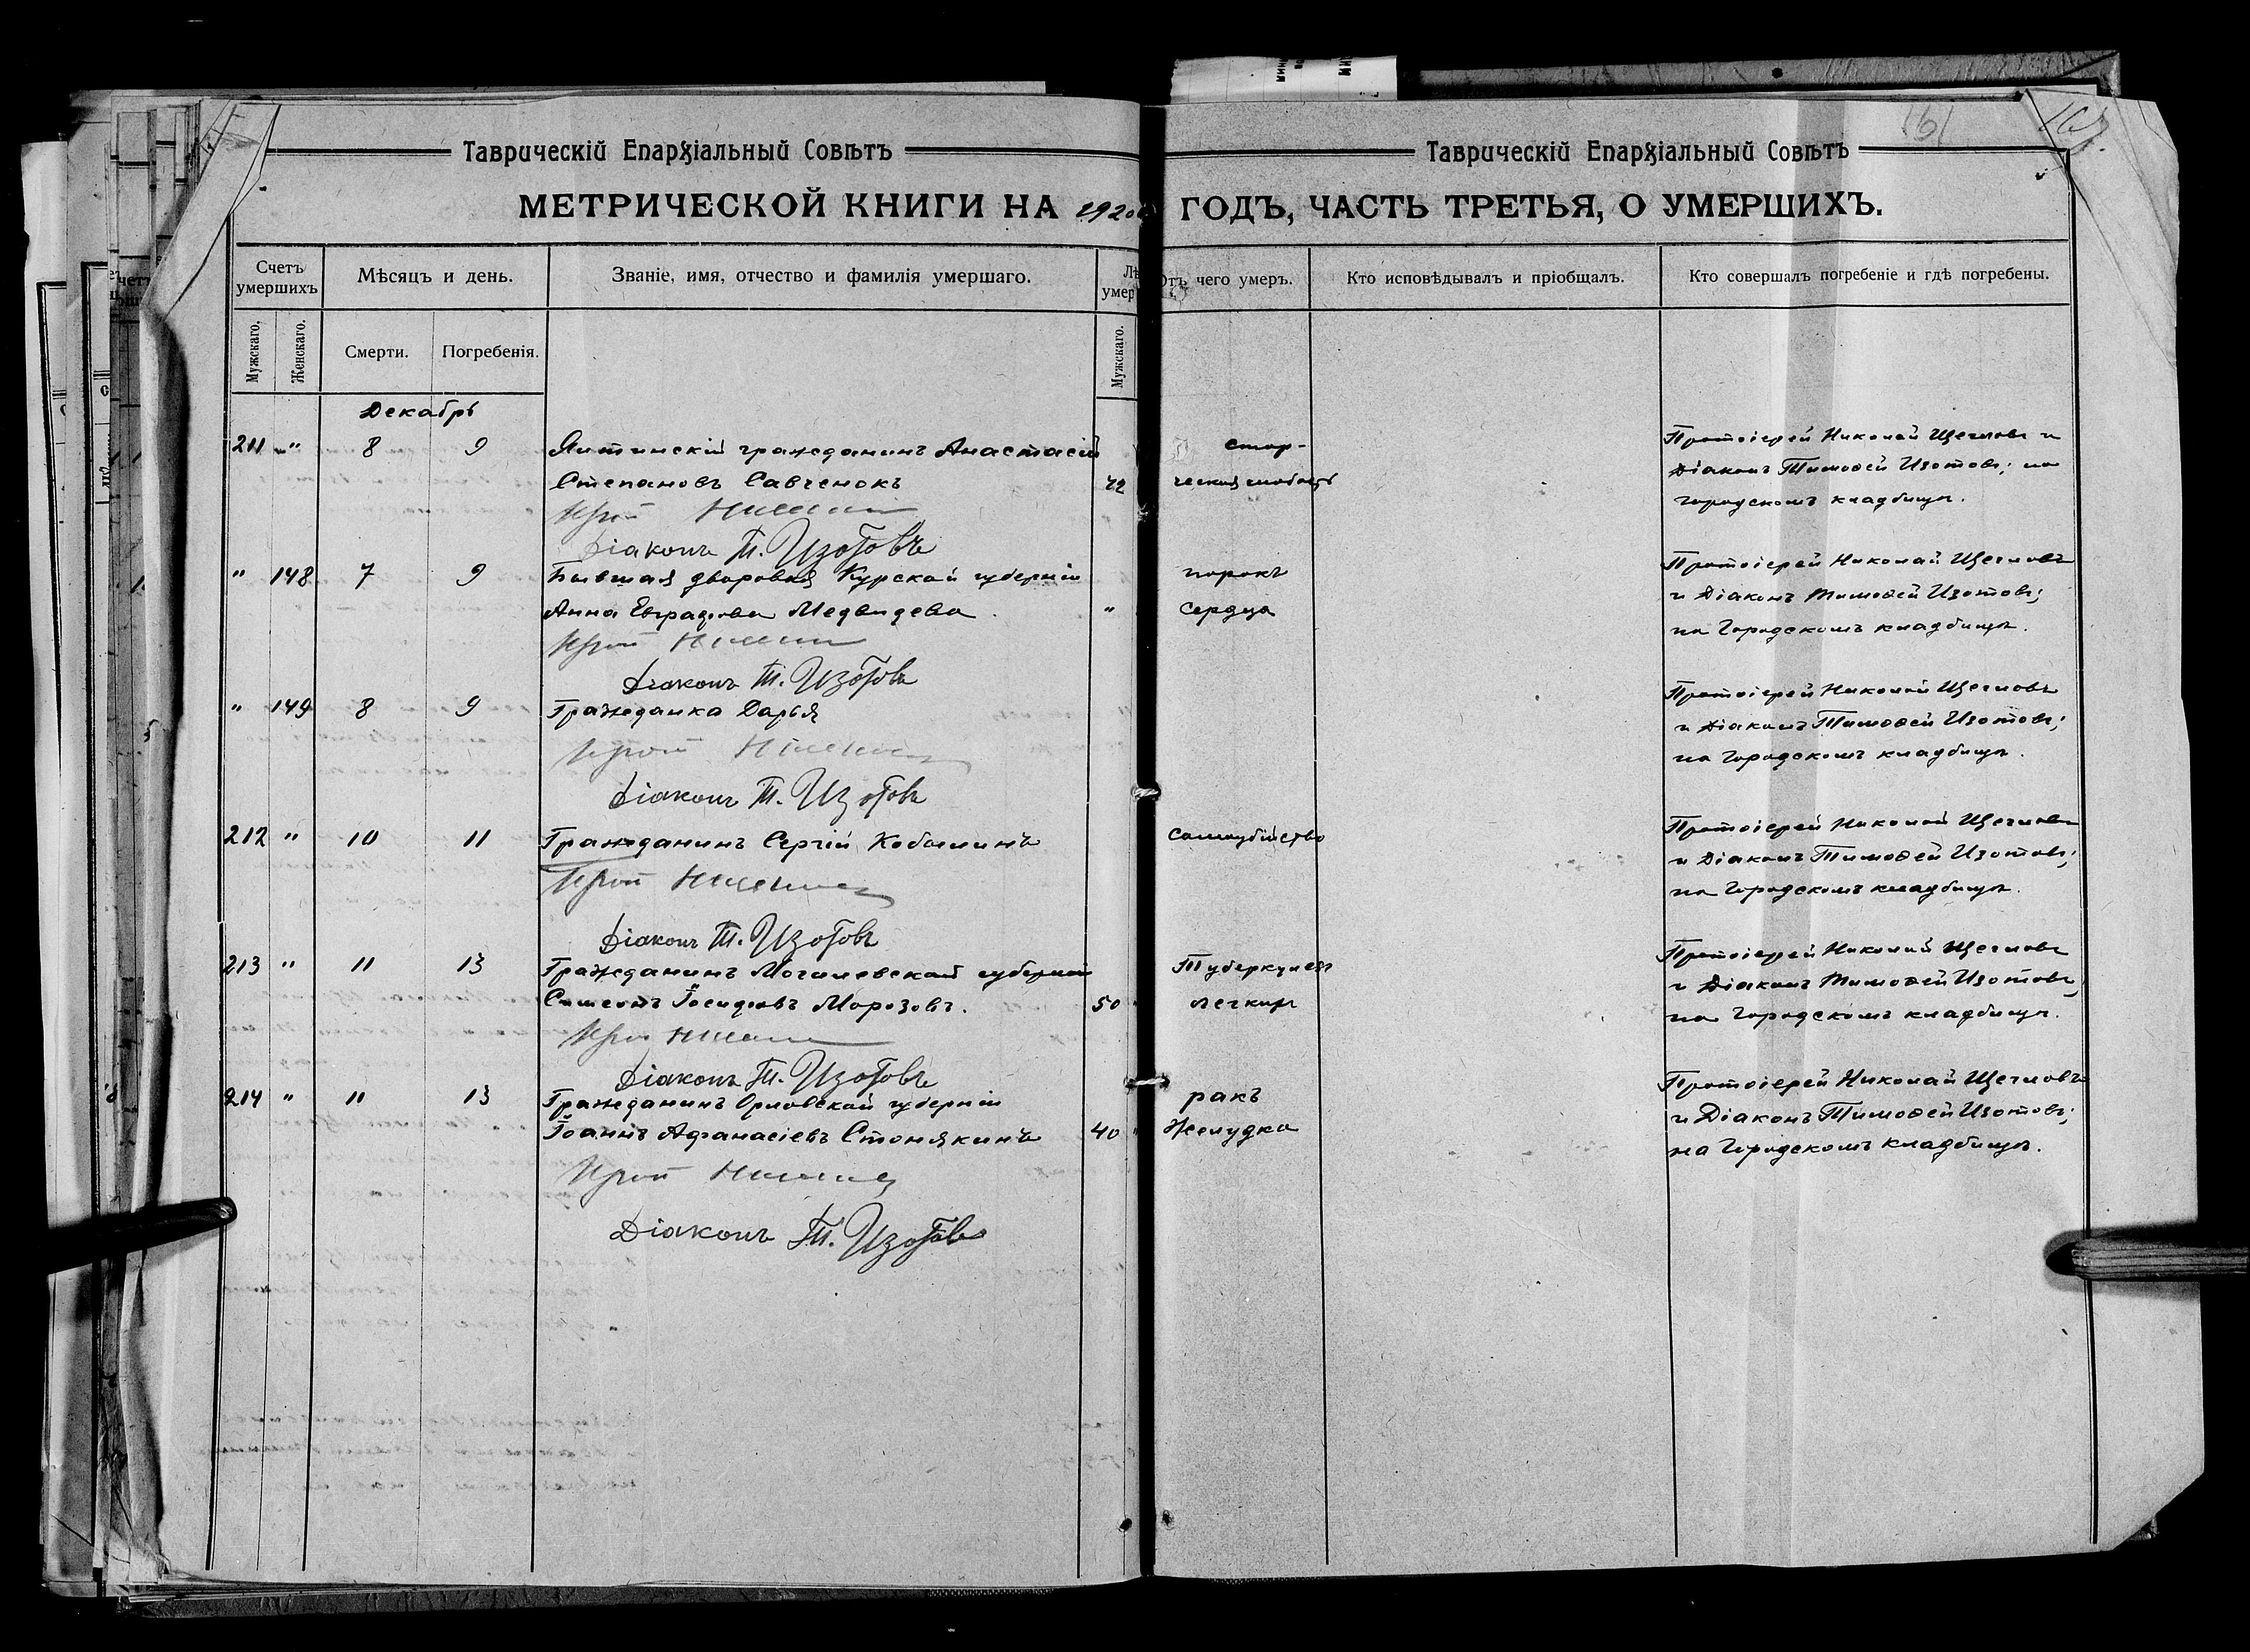 161
Таврическій Епархіальный Совѣтъ
Таврическій Епархіальный Совѣтъ
МЕТРИЧЕСКОЙ КНИГИ НА 1920
ГОДЪ, ЧАСТЬ ТРЕТЬЯ, О УМЕРШИХЪ.
Счетъ умершихъ
Мѣсяцъ и день.
Званіе, имя, отчество и фамилія умершаго.
Лѣ
умер
Отъ чего умеръ.
Кто исповѣдывалъ и пріобщалъ.
Кто совершалъ погребеніе и гдѣ погребены.
Мужскаго.
Женскаго.
Смерти.
Погребенія.
Мужскаго.
Декабрь
211 " 8 9 Ялтинскій гражданинъ Анастасій
Степановъ Савченокъ 72
Діаконъ Т. Изотовъ
стар-
ческая слабость
Протоіерей Николай Щегловъ и
Діаконъ Тимоѳей Изотовъ; на
городскомъ кладбищѣ.
" 148 7 9 Бывшая дворовая Курской губерніи
Анна Евграфова Медвидева. "
Діаконъ Т. Изотовъ
порокъ
сердца
Протоіерей Николай Щегловъ
и Діаконъ Тимоѳей Изотовъ;
на Городскомъ кладбищѣ.
" 149 8 9 Гражданка Дарья
Діаконъ Т. Изотовъ
Протоіерей Николай Щегловъ
и Діаконъ Тимоѳей Изотовъ;
на Городскомъ кладбищѣ.
212 " 10 11 Гражданинъ Сергій Кобылинъ
Діаконъ Т. Изотовъ
самоубійство
Протоіерей Николай Щегловъ
и Діаконъ Тимоѳей Изотовъ;
на Городскомъ кладбищѣ.
213 " 11 13 Гражданинъ Могилевской губерніи
Симеонъ Іосифовъ Морозовъ. 50
Діаконъ Т. Изотовъ
Туберкулезъ
легкихъ
Протоіерей Николай Щегловъ
и Діаконъ Тимоѳей Изотовъ;
на Городскомъ кладбищѣ.
214 " 11 13 Гражданинъ Орловской губерніи
Іоаннъ Афанасіевъ Стонякинъ 40
Діаконъ Т. Изотовъ
ракъ
Желудка
Протоіерей Николай Щегловъ
и Діаконъ Тимоѳей Изотовъ;
на Городскомъ кладбищѣ.